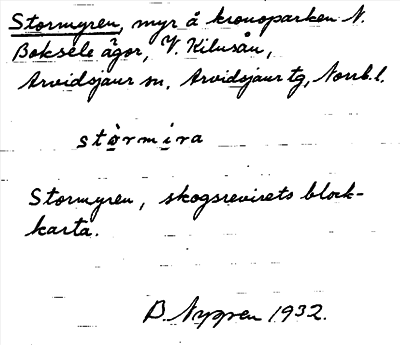 Stormyren, myr å kronoparken N.
Boksele ägor, V. Kilusån,
Arvidsjaur sn, Arvidsjaur tg, Norrb. l.
stòrmira
Stormyren, skogsrevirets block-
karta.
B. Nygren 1932.